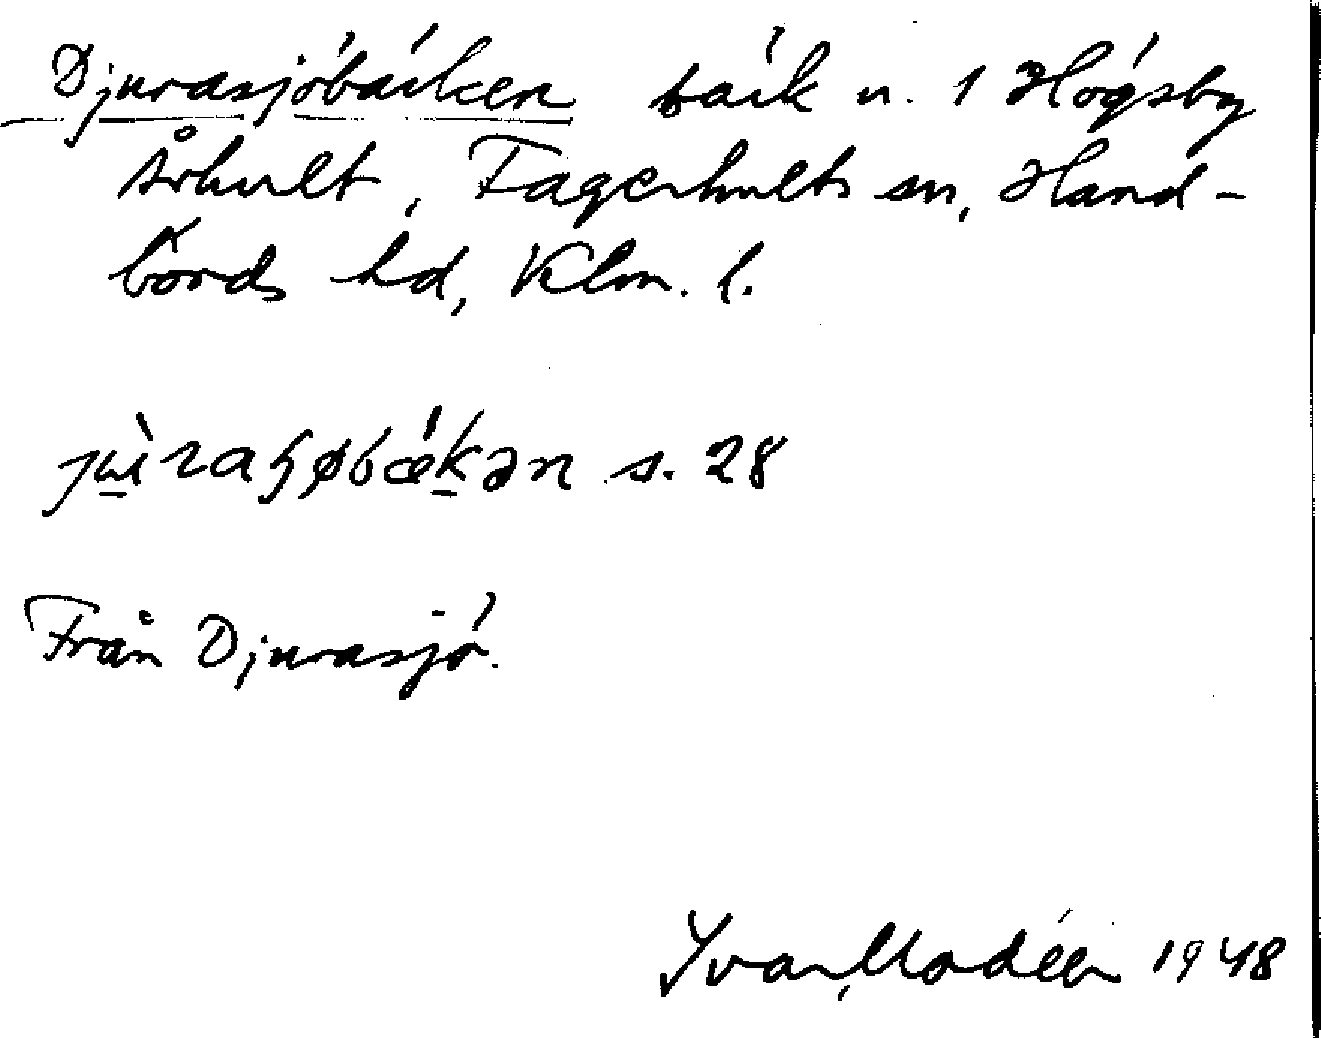 Djurasjöbäcken bäck n. 1 Högsby
Århult, Fagerhults sn, Hand-
börds hd, Klm. l.
jùraɧøbǽkən s. 28
Från Djurasjö.
Ivar Modéer 1948